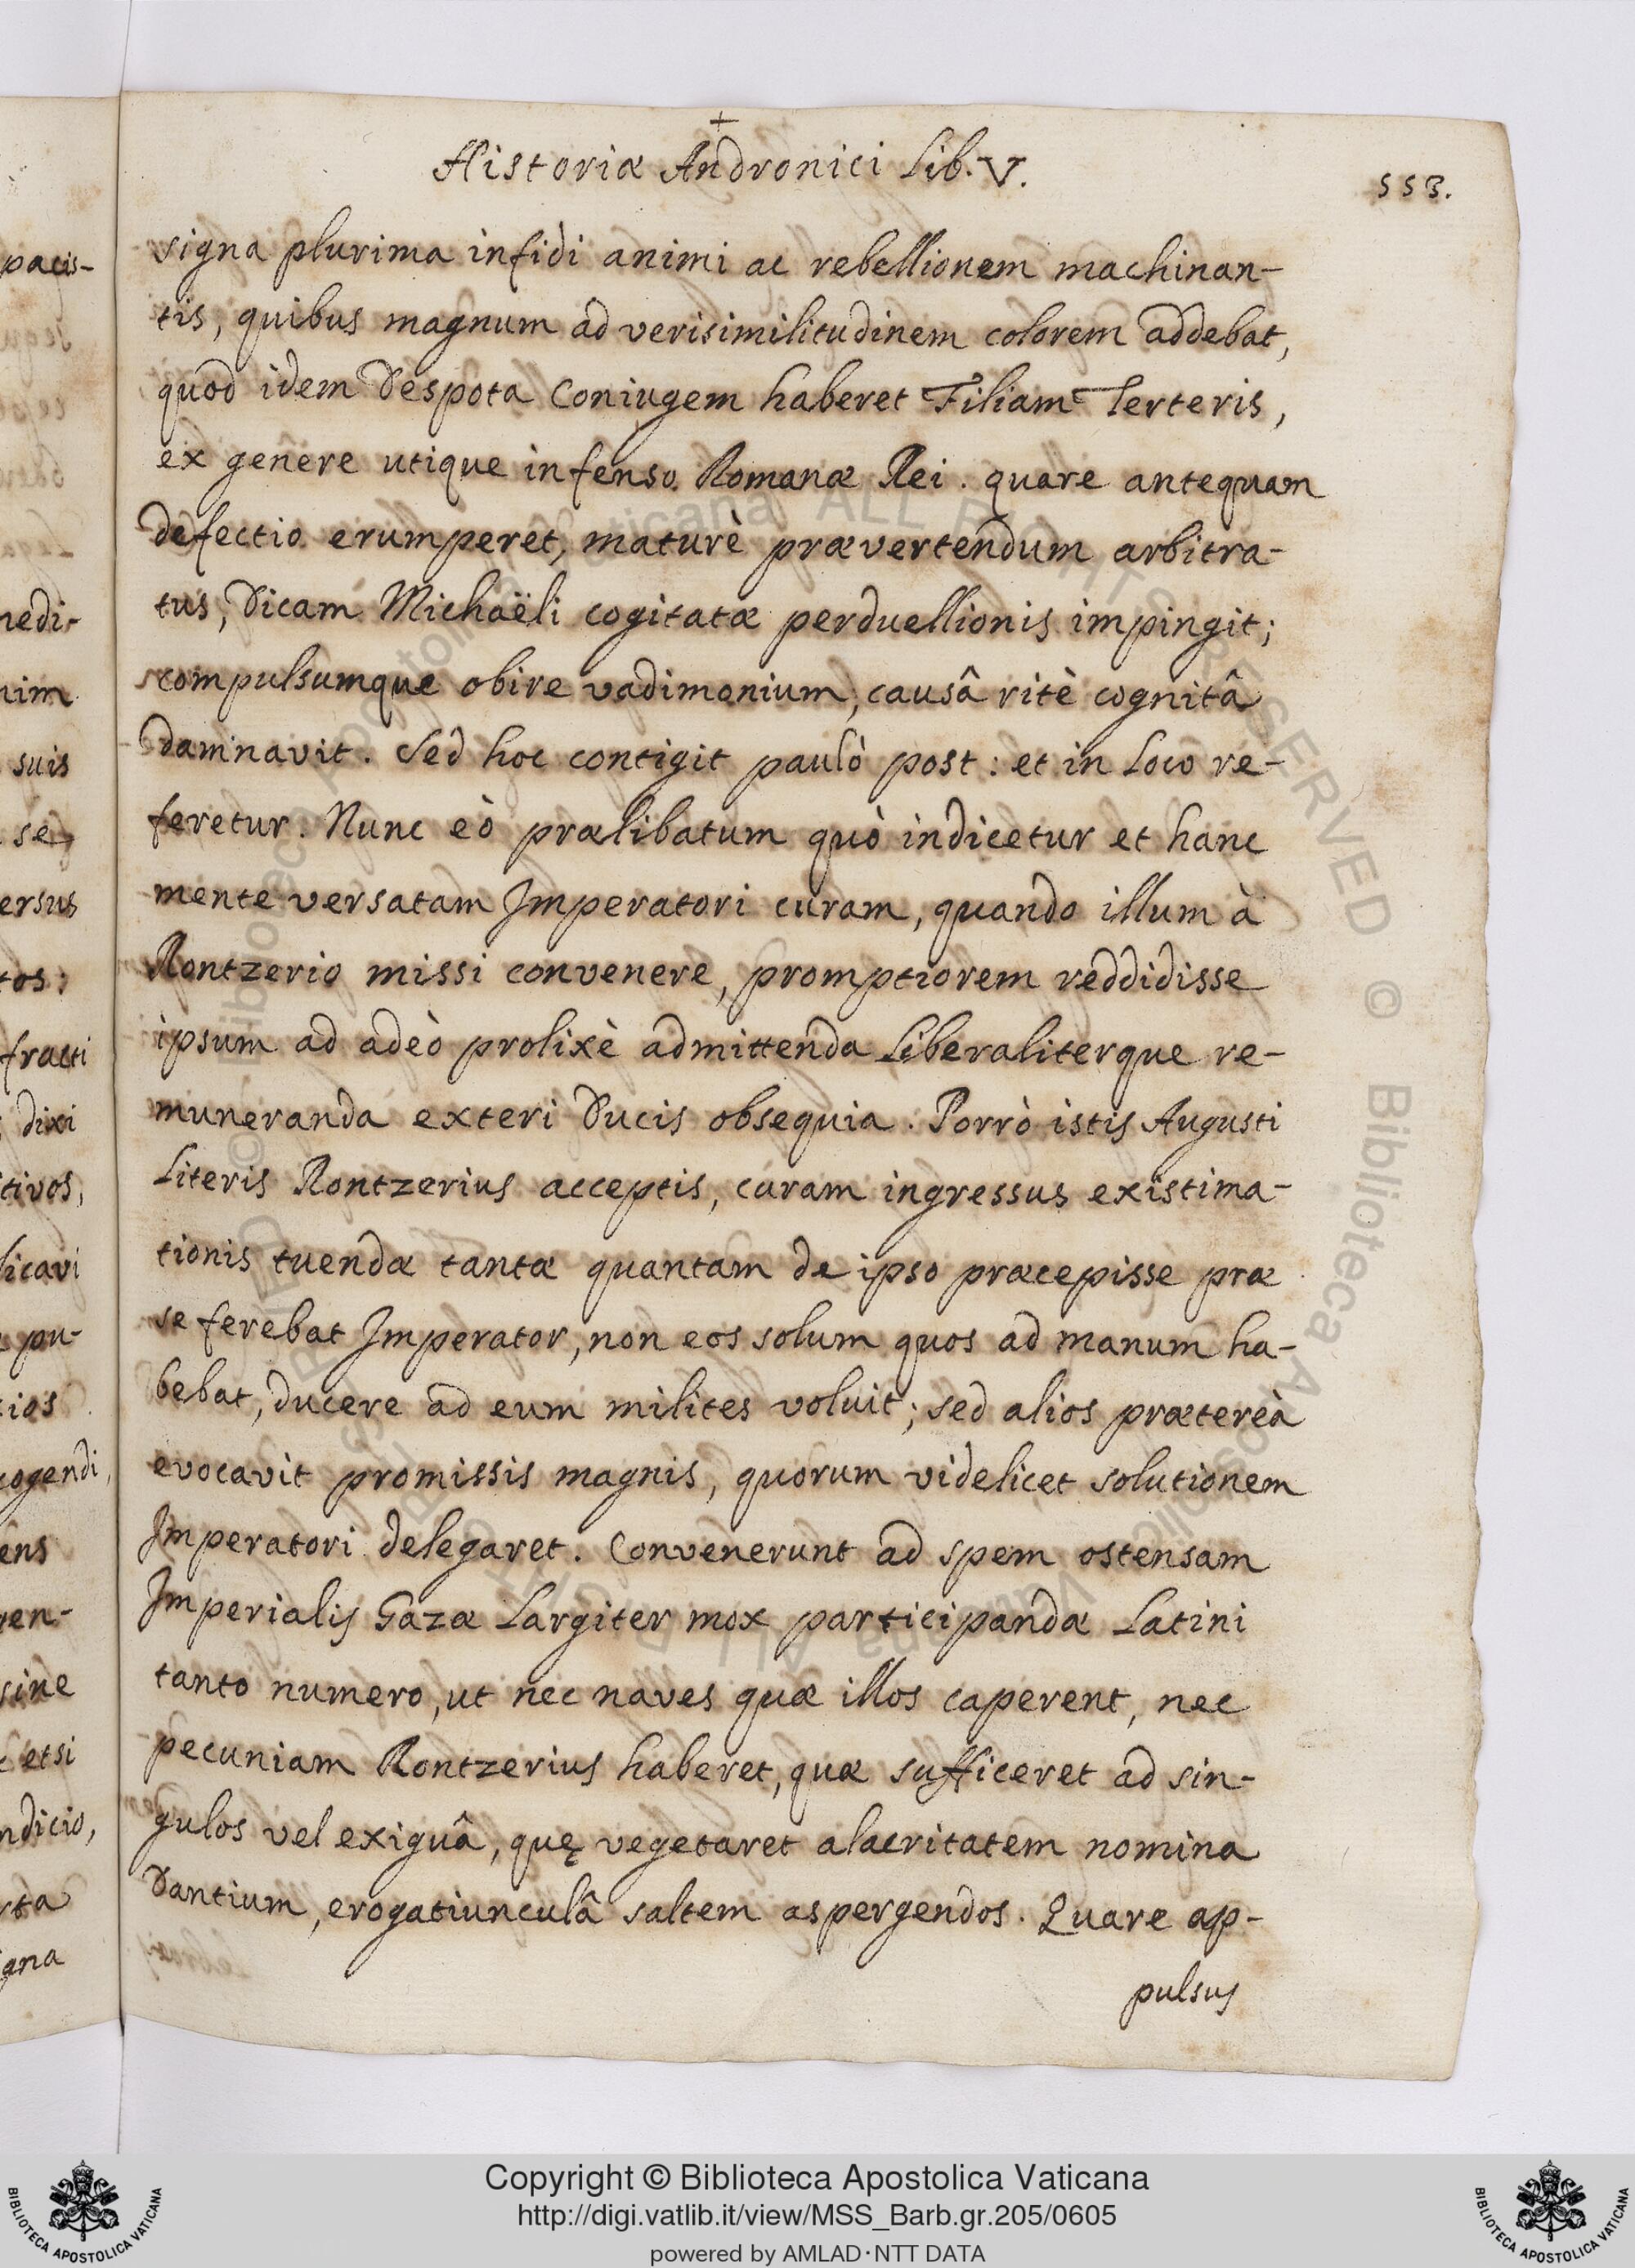 +
Historiæ Andronici Lib. V.
553.
signa plurima infidi animi ac rebellionem machinan-
tis, quibus magnum ad verisimilitudinem colorem addebat,
quod idem Despota Coniugem haberet Filiam Terteris,
ex genere utique infenso Romanæ Rei. quare antequam
defectio erumperet, maturè prævertendum arbitra-
tus, Dicam Michaëli cogitatæ perduellionis impingit;
compulsumque obire vadimonium, causâ ritè cognitâ
damnavit. Sed hoc contigit paulò post: et in Loco re-
feretur. Nunc eò prælibatum quò indicetur et hanc
mente versatam Imperatori curam, quando illum à
Rontzerio missi convenere, promptiorem reddidisse
ipsum ad adeò prolixè admittenda Liberaliterque re-
muneranda exteri Ducis obsequia. Porrò istis Augusti
Literis Rontzerius acceptis, curam ingressus existima-
tionis tuendæ tantæ quantam de ipso præcepisse præ
se ferebat Imperator, non eos solum quos ad manum ha-
bebat, ducere ad eum milites voluit; sed alios prætereà
evocavit promissis magnis, quorum videlicet solutionem
Imperatori delegaret. Convenerunt ad spem ostensam
Imperialis Gazæ Largiter mox participandæ Latini
tanto numero, ut nec naves quæ illos caperent, nec
pecuniam Rontzerius haberet, quæ sufficeret ad sin-
gulos vel exiguâ, quę vegetaret alacritatem nomina
Dantium, erogatiunculâ saltem aspergendos. Quare ap-
pulsus
pacis-
nedi-
nim
suis
se
ersus
tos:
fracti
dixi
tivos,
licavi
pu-
ios
cogendi,
ens
gen-
sine
etsi
ndicio,
rta
igna
Copyright © Biblioteca Apostolica Vaticana
http://digi.vatlib.it/view/MSS_Barb.gr.205/0605
powered by AMLAD·NTT DATA
BIBLIOTECA APOSTOLICA VATICANA
BIBLIOTECA APOSTOLICA VATICANA